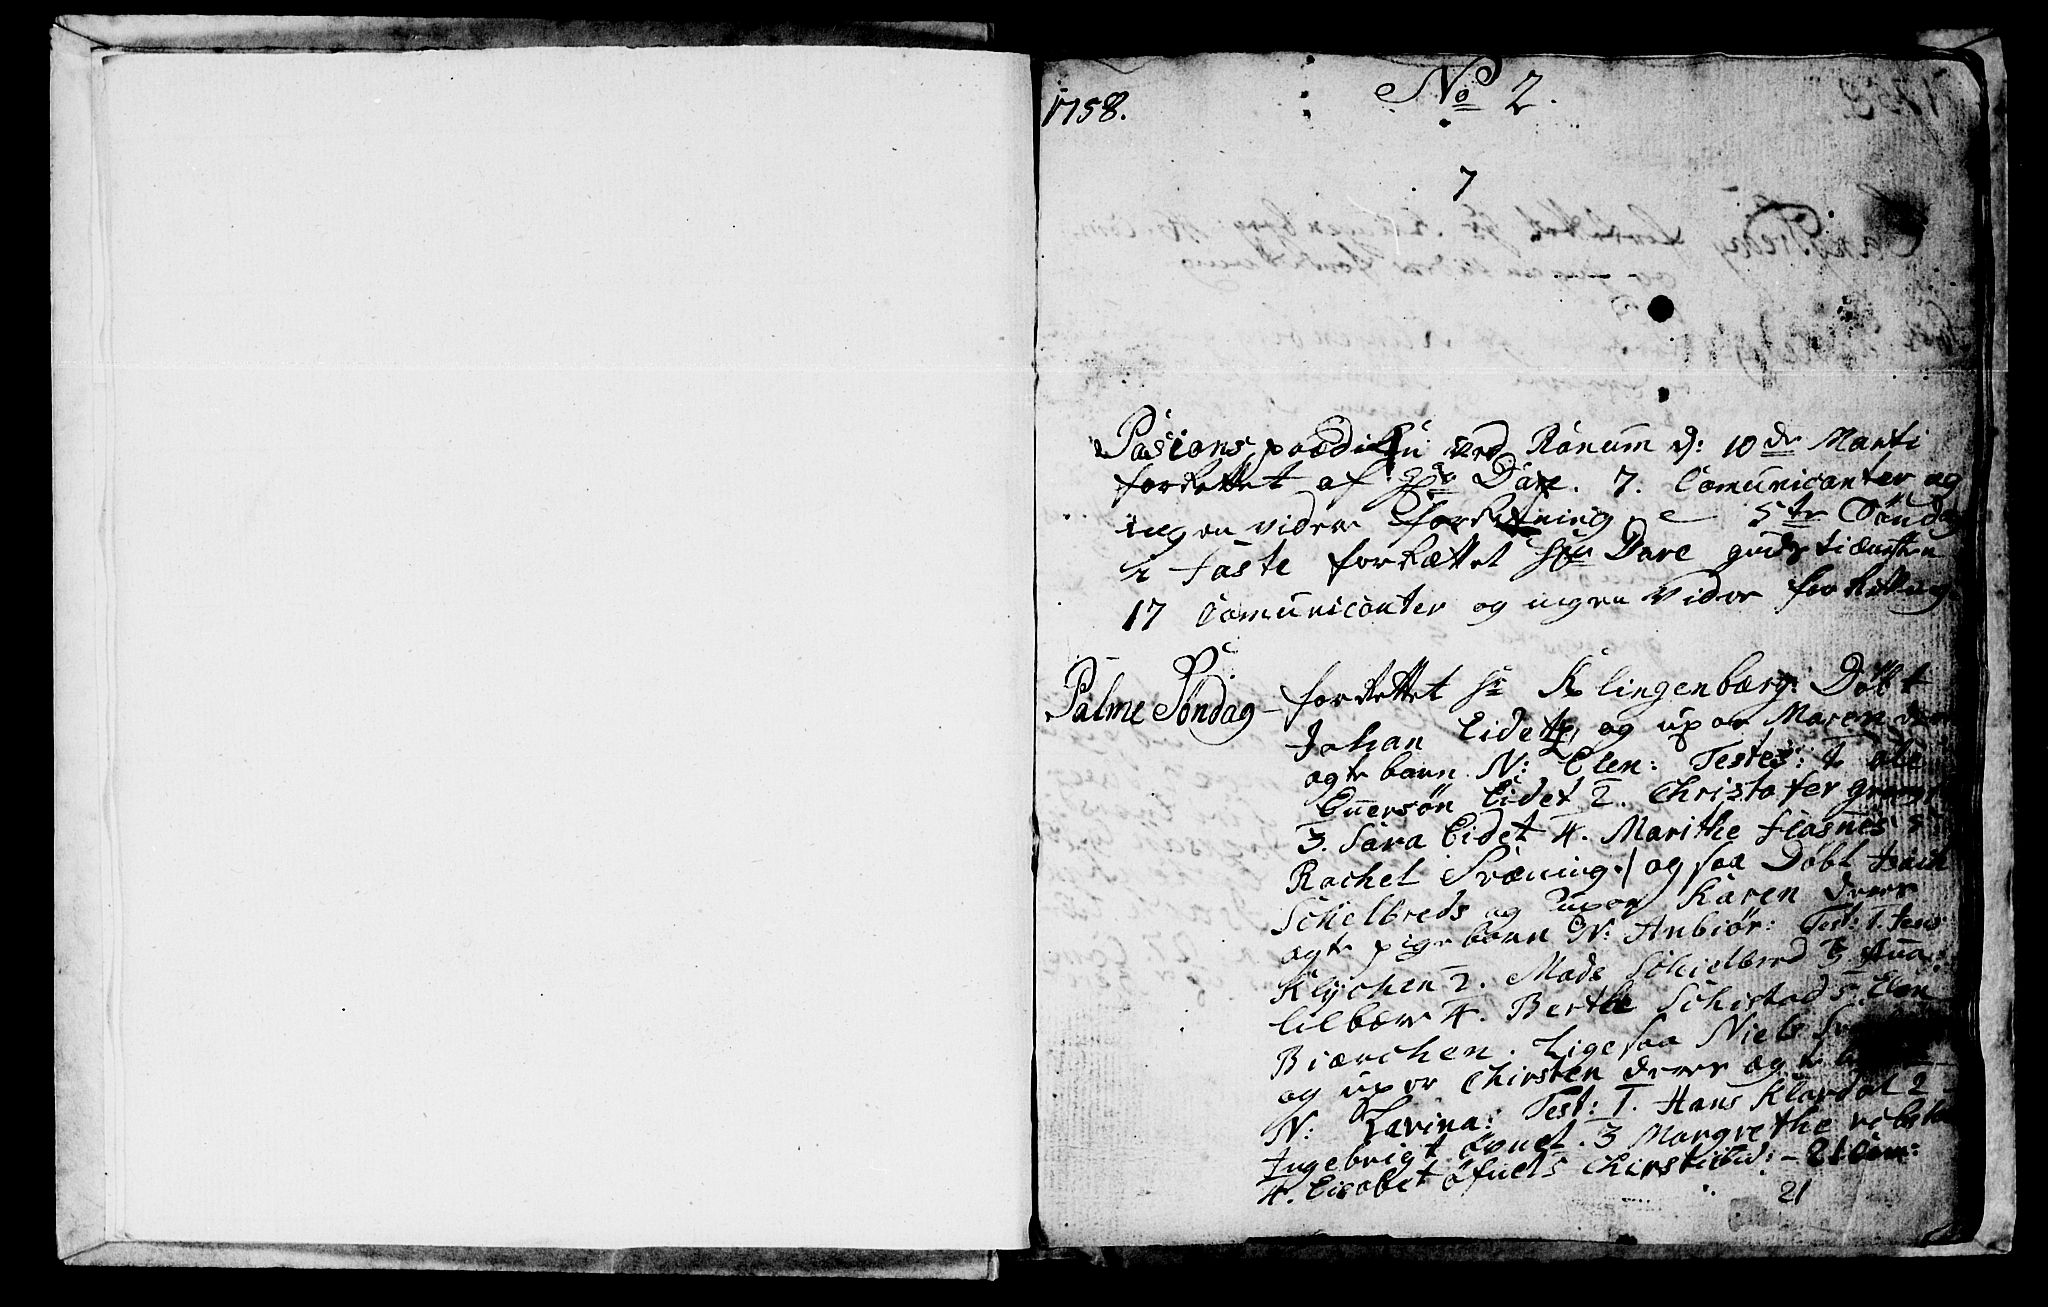 1758.
No 2.
7
Pasions prædiken ved Ranum d: 10de Marti
forrettet af Hr Dare. 7. Comunicanter og
ingen vider forretning 5te Søndag
i Faste forrættet Hr Dare gudstienesten
17 Comunicanter og ingen vider forretning
Palme Søndag - forrettet Hr Klingenbærg: Døbt
Johan Eidet og uxor Maren
ægte barn N: Elen: Testes: 1 Ole
Enersøn Eidet 2. Christofer
3. Sara Eidet 4. Marithe Flasnes 5
Rachel Svæning. / og saa Døbt
Schelbreds og uxor Karen deres
ægte pigebarn N: Anbiør: Test: 1. Jens
Klychen 2. Mads Schielbred 3
lilbær 4. Berthe Schistad 5 Elen
Biærchen. Ligesaa Niels
og uxor Chirsten deres ægte
N: Karina: Test: 1. Hans Klærdal 2
Ingebrigt 3 Margrethe
4. Lisabet 5 - 21 Com:
21